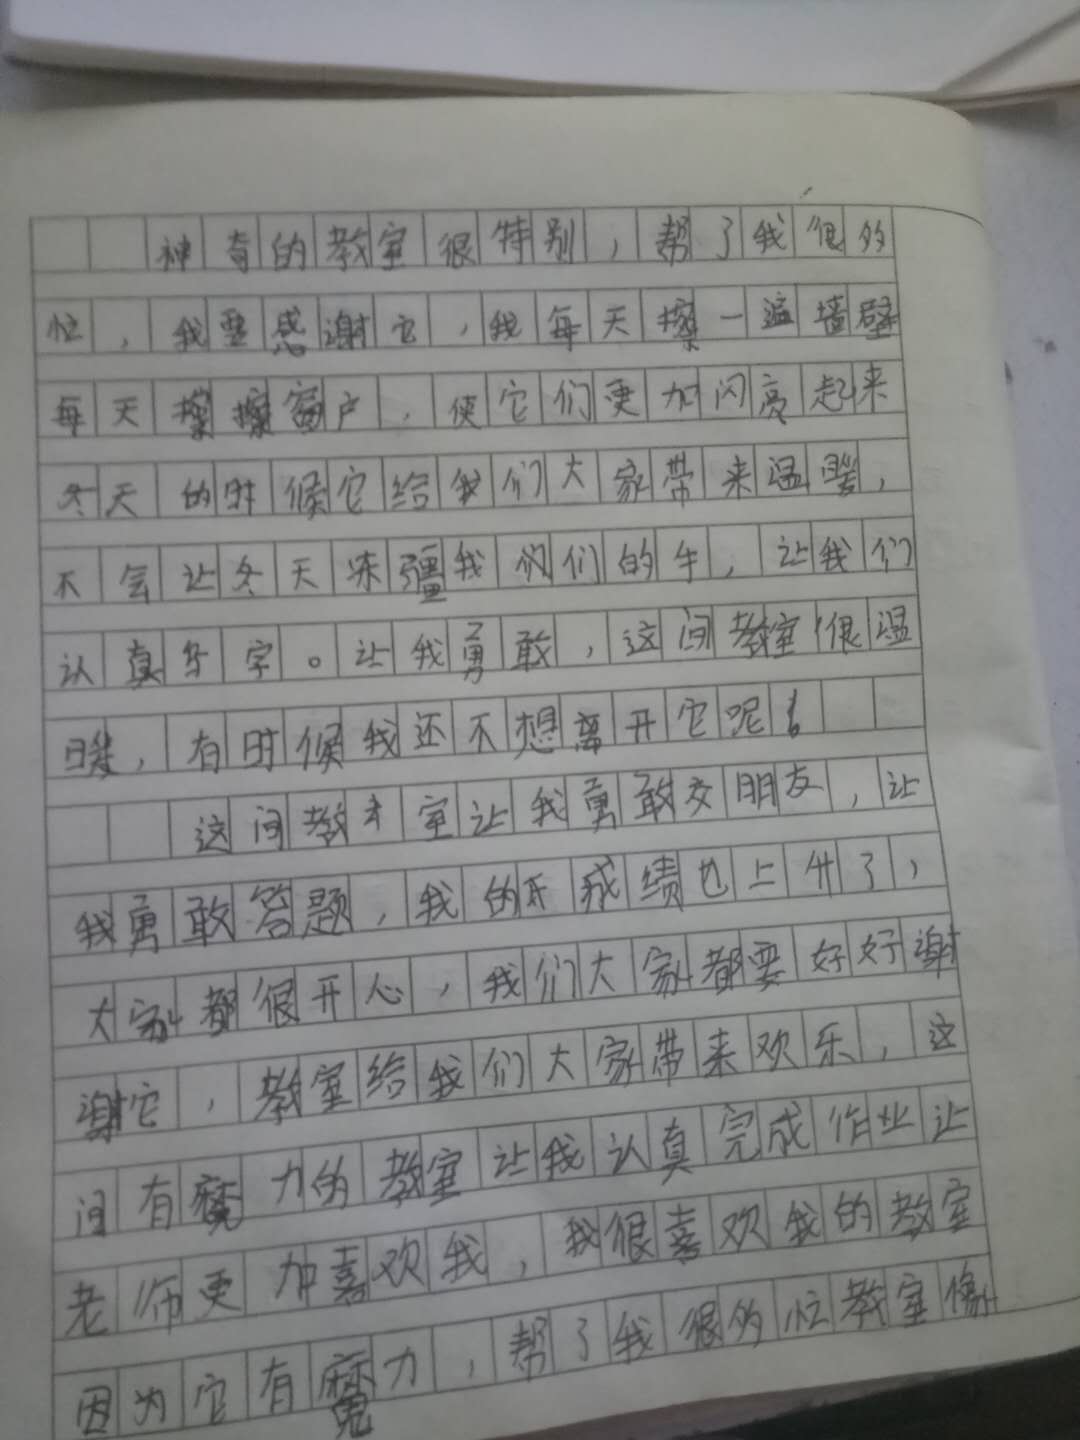 神奇的教室很特别，帮了我很多
忙，我要感谢它，我每天擦一遍墙壁
每天擦擦窗户，使它们更加闪亮起来
冬天的时候它给我们大家带来温暖，
不会让冬天冻疆我们们的手，让我们
认真写字。让我勇敢，这间教室很温
暖，有时候我还不想离开它呢！
这间教室让我勇敢交朋友，让
我勇敢答题，我的成绩也上升了，
大家都很开心，我们大家都要好好谢
谢它，教室给我们大家带来欢乐，这
间有魔力的教室让我认真完成作业让
老师更加喜欢我，我很喜欢我的教室
因为它有魔力，帮了我很多忙教室像